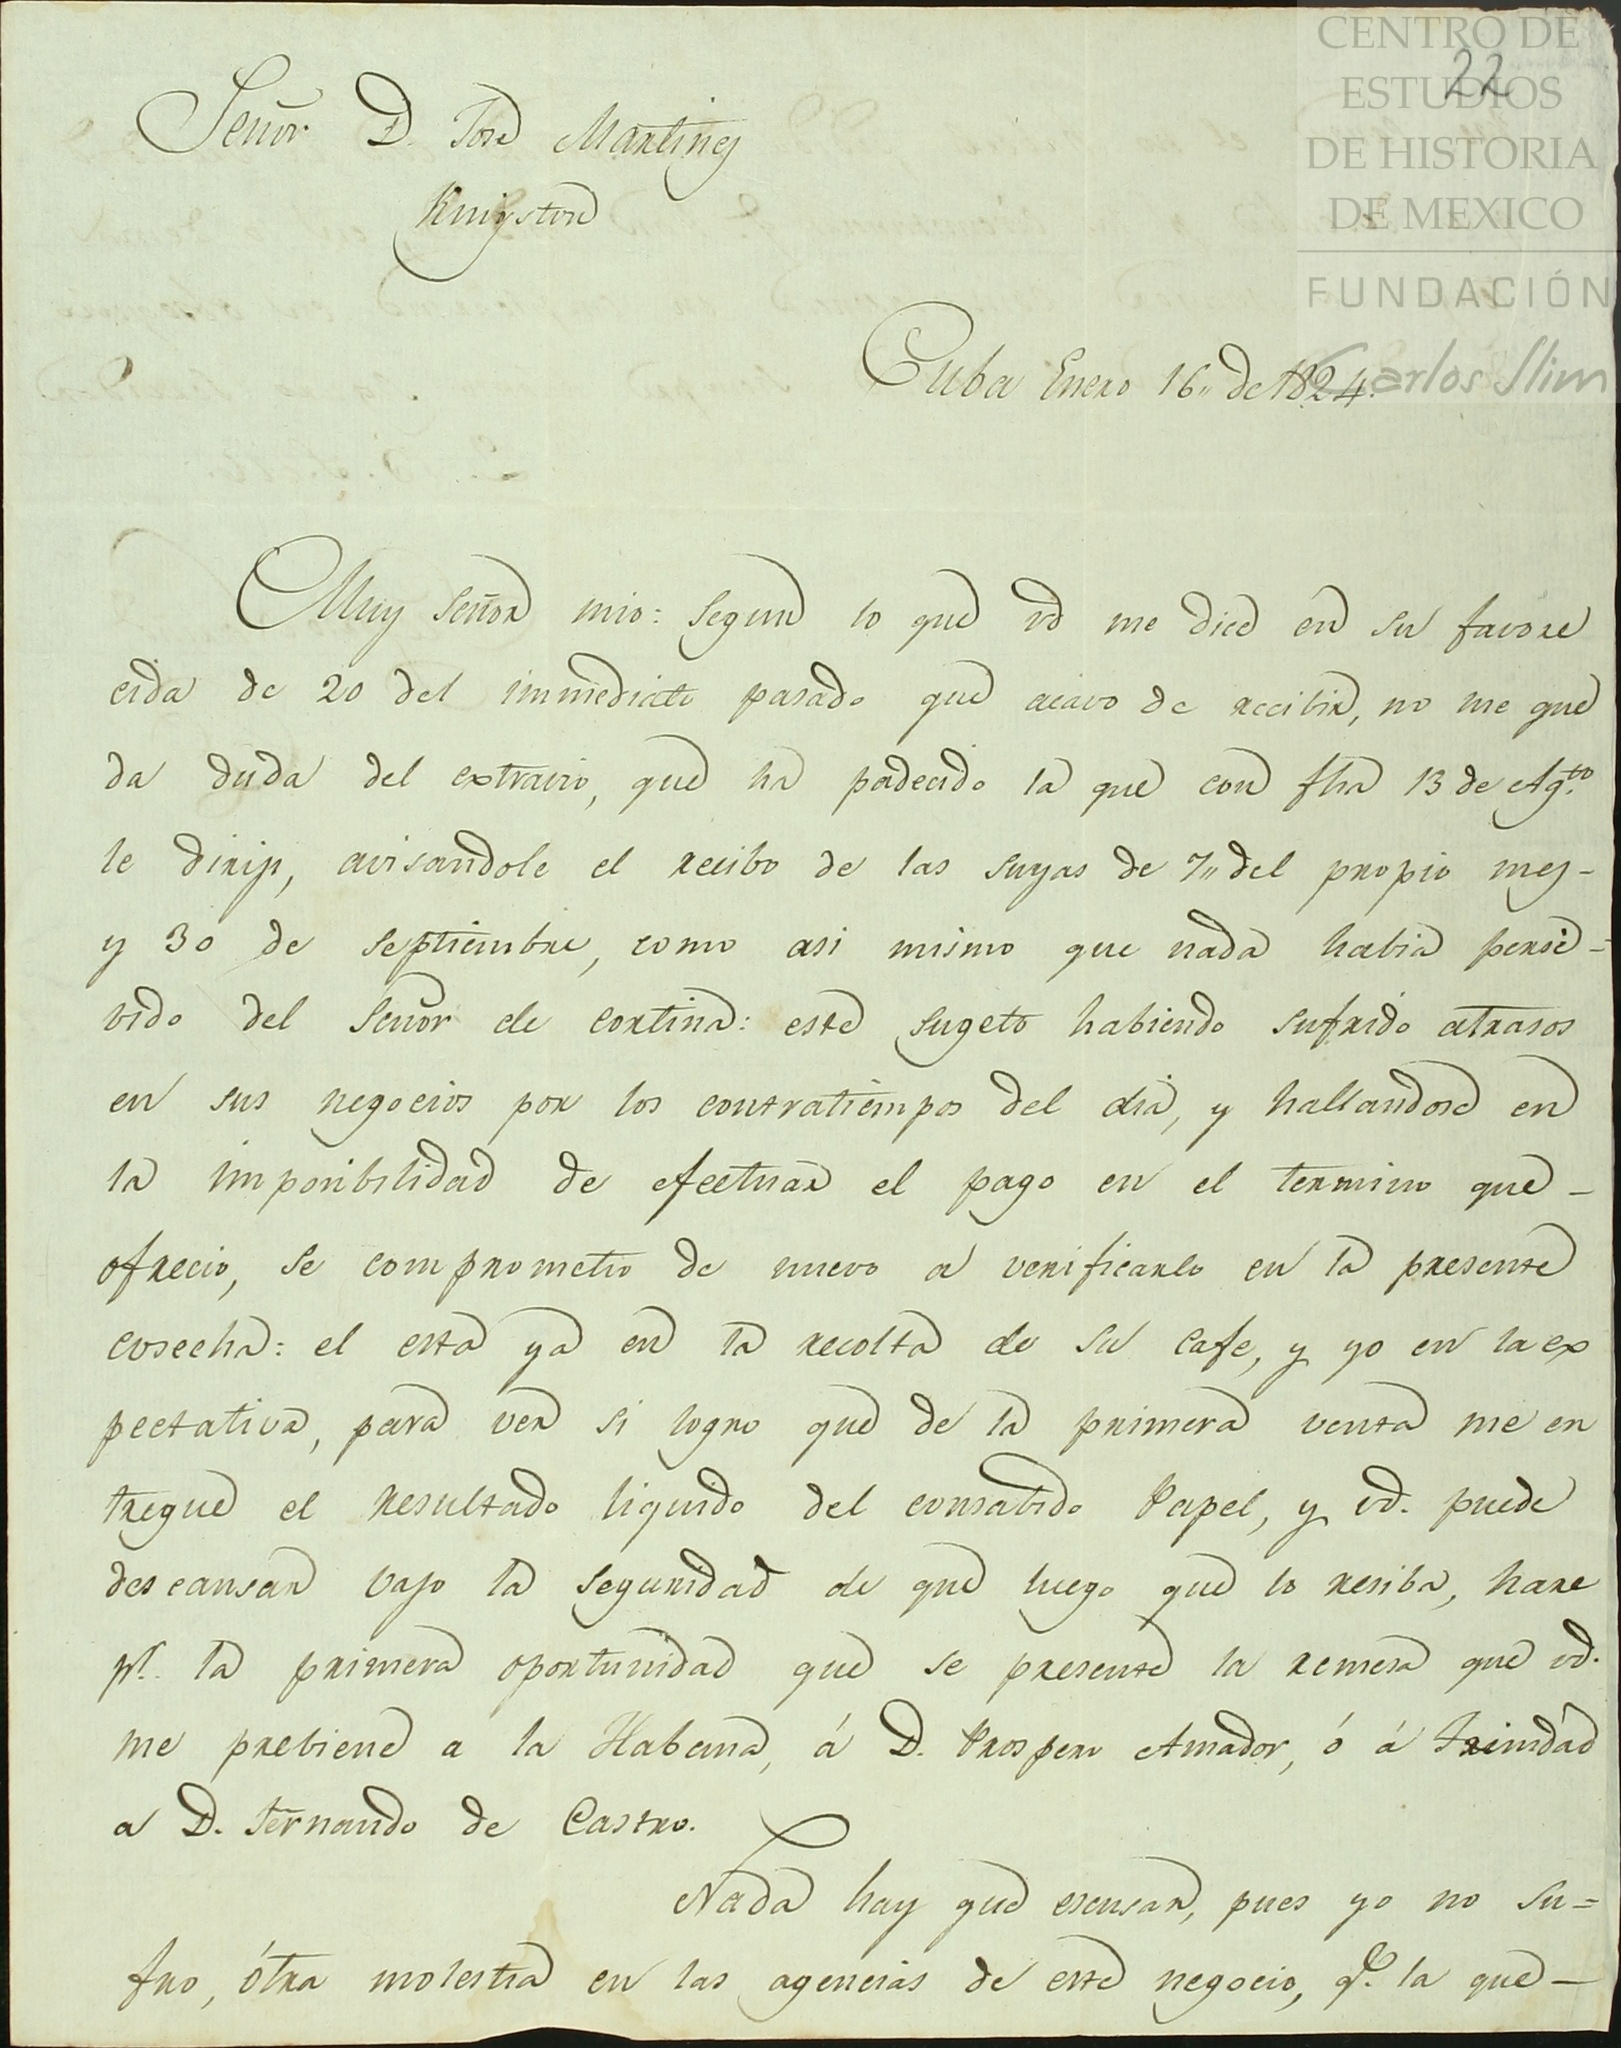 CENTRO DE
ESTUDIOS
DE HISTORIA
DE MEXICO
FUNDACIÓN
Carlos Slim
22
Señor D. José Martinez
Kingston
Cuba Enero 16,, de 1824.
Muy señor mio: segun lo que vd me dice en su favore
cida de 20 del immediato pasado que acavo de recibir, no me que
da duda del extravio, que ha padecido la que con fha 13 de Agto.
le diriji, avisandole el recibo de las suyas de 7,, del propio mez-
y 30 de septiembre, como asi mismo que nada habia persi=
vido del Señor de Cortina: este sugeto habiendo sufrido atrasos
en sus negocios por los contratiempos del dia, y hallandose en
la imposibilidad de efectuar el pago en el termino que -
ofrecio, se comprometio de nuevo a verificarlo en la presente
cosecha: el esta ya en la recolta de su cafe, y yo en la ex
pectativa, para ver si logro que de la primera venta me en
tregue el resultado liquido del consabido Papel, y vd. puede
descansar vajo la seguridad de que luego que lo resiba, hare
pr. la primera oportunidad que se presente la remesa que vd.
me prebiene a la Habana, á D. Prospero Amador, ó á Trinidad
a D. Fernando de Castro.
Nada hay que escusar, pues yo no su=
fro, ótra molestia en las agencias de este negocio, qe. la que -